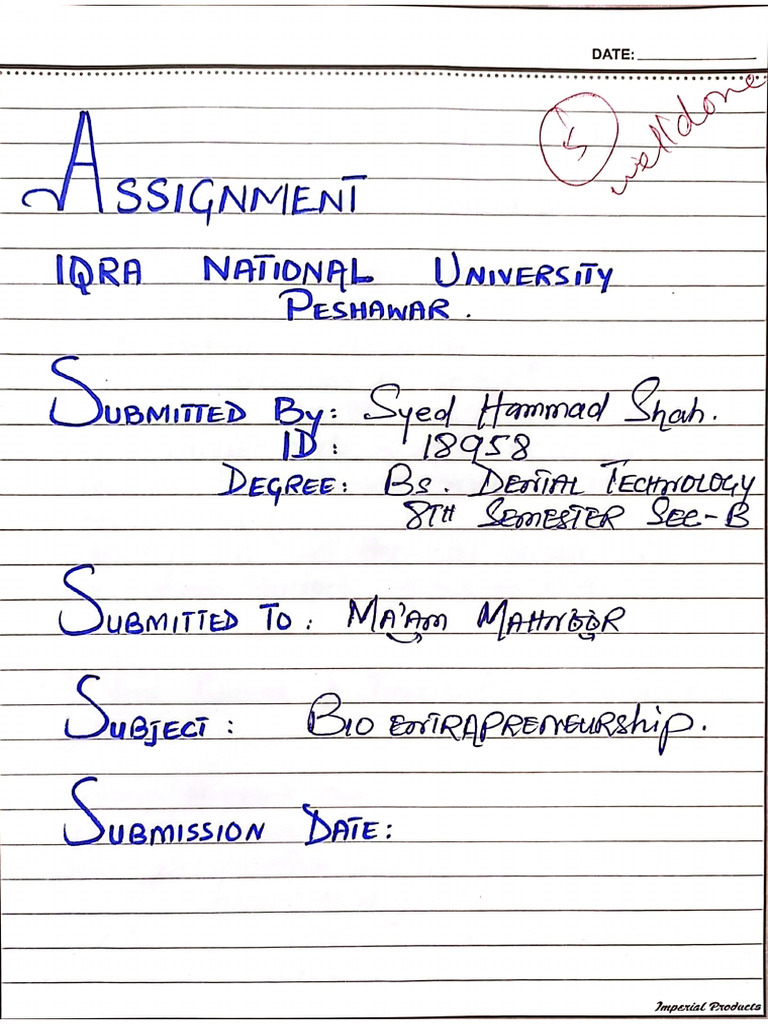 DATE:
5
well done
ASSIGNMENT
IQRA NATIONAL UNIVERSITY
PESHAWAR.
SUBMITTED By: Syed Hammad Shah.
ID: 18958
DEGREE: Bs. DENTAL TECHNOLOGY
8TH SEMESTER SEC-B
SUBMITTED TO: MA'AM MAHNOOR
SUBJECT: BIO ENTRAPRENEURship.
SUBMISSION DATE:
Imperial Products